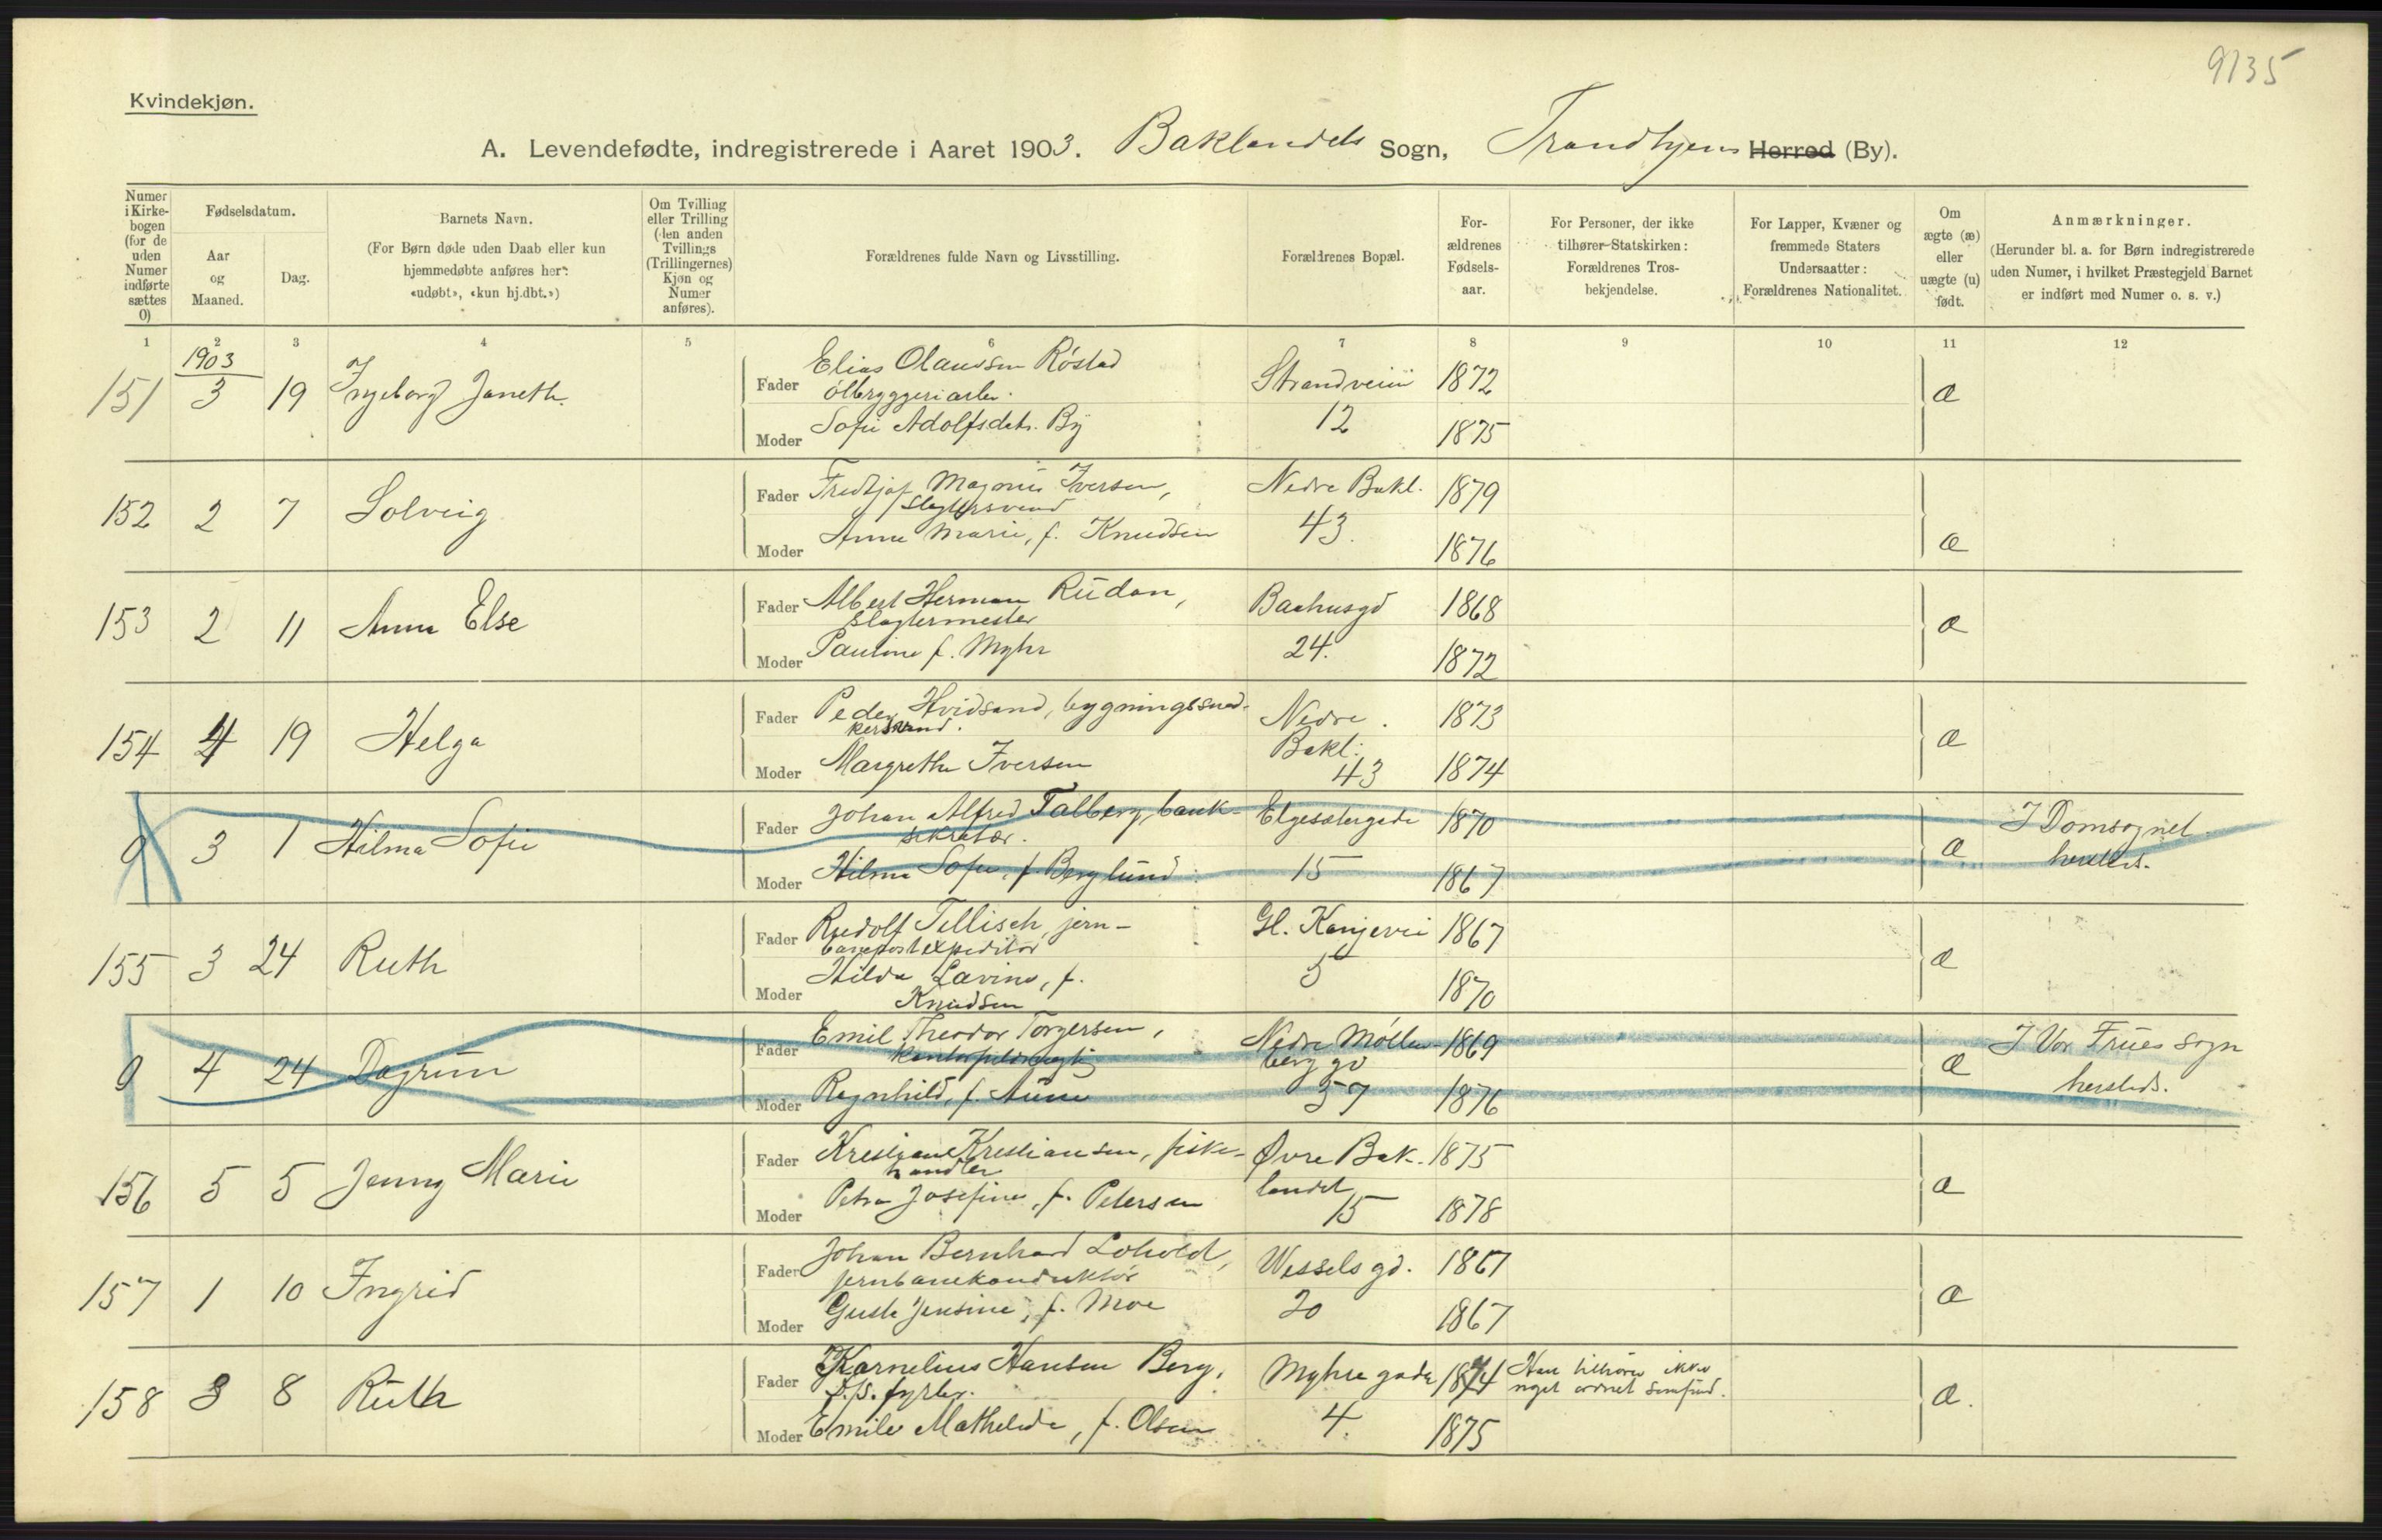 9135
Kvindekjøn.
A. Levendefødte, indregistrerede i Aaret 1903. Baklandets Sogn, Trondhjems Herred (By).
Numer i Kirkebogen (for de uden Numer indførte sættes 0)
Fødselsdatum.
Aar og Maaned.
Dag.
Barnets Navn.
(For Børn døde uden Daab eller kun hjemmedøbte anføres her: «udøbt», «kun hj.dbt.»)
Om Tvilling eller Trilling (den anden Tvillings (Trillingernes) Kjøn og Numer anføres).
Forældrenes fulde Navn og Livsstilling.
Forældrenes Bopæl.
Forældrenes Fødselsaar.
For Personer, der ikke tilhører Statskirken: Forældrenes Trosbekjendelse.
For Lapper, Kvæner og fremmede Staters Undersaatter: Forældrenes Nationalitet.
Om ægte (æ) eller uægte (u) født.
Anmærkninger.
(Herunder bl. a. for Børn indregistrerede uden Numer, i hvilket Præstegjeld Barnet er indført med Numer o. s. v.)
1 2 3 4 5 6 7 8 9 10 11 12
1903
151 3 19 Ingeborg Janeth.
Fader Elias Olaussen Røstad Strandveien 1872 æ
ølbryggeriarb.
Moder Sofie Adolfsdatr. By 12 1875
152 2 7 Solveig
Fader Fredtjof Magnus Iversen, Nedre Bakl. 1879 æ
slagtersvend
Moder Anna Marie, f. Knudsen 43. 1876
153 2 11 Anna Else
Fader Albert Herman Rudan, Bakhusgd 1868 æ
slagtermester
Moder Pauline f. Myhr 24. 1872
154 4 19 Helga
Fader Peder Hvidsand, bygningssned- Nedre 1873 æ
kersvend. Bakl.
Moder Margrethe Iversen 43 1874
0 3 1 Hilma Sofie
Fader Johan Alfred Talberg, bank- Elgesætergade 1870 æ I Domsognet
sekretær. hersteds.
Moder Hilma Sofie, f. Berglund 15 1867
155 3 24 Ruth
Fader Rudolf Tellisch, jern- Gl. Kongevei 1867 æ
banepostexpeditør
Moder Hilda Lavina, f. 5 1870
Knudsen
0 4 24 Dagrun
Fader Emil Theodor Torgersen, Nedre Møllen- 1869 æ I Vor Frues sogn
kontorfuldmægtig berg gd hersteds.
Moder Ragnhild, f. Aune 57 1876
156 5 5 Jenny Marie
Fader Kristian Kristiansen, fiske- Øvre Bak- 1875 æ
handler landet
Moder Petra Josefine, f. Petersen 15 1878
157 1 10 Ingrid
Fader Johan Bernhard Lohold, Wessels gd. 1867 æ
jernbanekonduktør
Moder Gusta Jensine, f. Moe 20 1867
158 3 8 Ruth
Fader Karnelius Hansen Berg, Myhre gade 1874 Han tilhører ikke æ.
D.S. fyrbr. noget ordnet samfund.
Moder Emilie Mathilde, f. Olsen 4. 1875